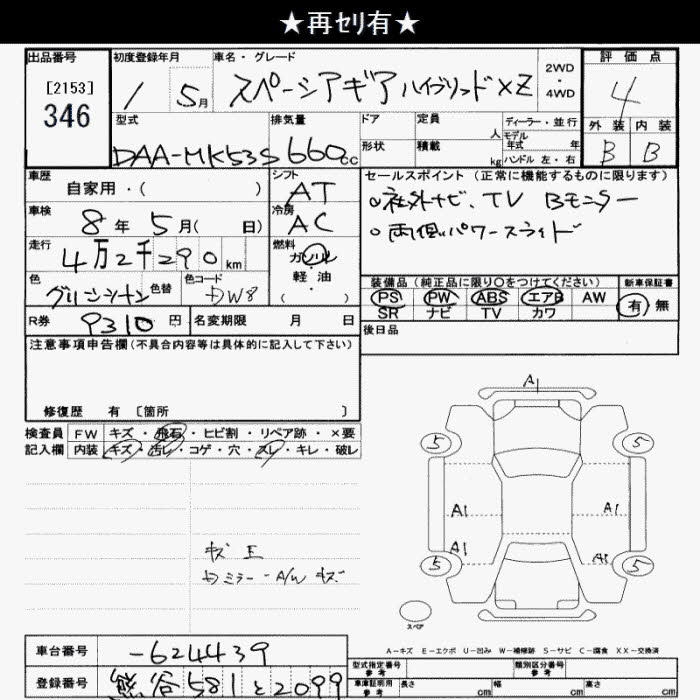 ★再ｾﾘ有★
出品番号 初度登録年月 車名・グレード 2WD・4WD 評価点
[2153]
346 1 5月 スペーシアギア ハイブリッドXZ 4
型式 排気量 ドア 定員 人 ディーラー・並行 外装 内装
DAA-MK53S 660cc 形状 積載 kg モデル年式 年 ハンドル 左・右 B B
車歴 シフト セールスポイント (正常に機能するものに限ります)
自家用・( ) AT ○社外ナビ、TV Bモニター
車検 8年 5月( 日) 冷房 AC ○両側パワースライド
走行 4万2千290km 燃料 ガソリン
軽・油
( )
色 グリーン 色替 色コード DW8
装備品 (純正品に限り○をつけてください) 新車保証書
PS PW ABS エアB AW 有・無
SR ナビ TV カワ
R券 9310円 名変期限 月 日 後日品
注意事項申告欄(不具合内容等は具体的に記入して下さい)
修復歴 有 〔箇所 〕
検査員 FW キズ・飛石・ヒビ割・リペア跡・×要
記入欄 内装 キズ・汚レ・コゲ・穴・スレ・キレ・破レ
A1
5 5
A1 A1
A1 A1
5 5
スペア
キズ
ミラー・A/W キズ
A-キズ E-エクボ U-凹み W-補修跡 S-サビ C-腐食 XX-交換済
車台番号 -624439
型式指定番号 参考 類別区分番号 参考
登録番号 熊谷581と2099
車庫証明用 参考 長さ cm 幅 cm 高さ cm